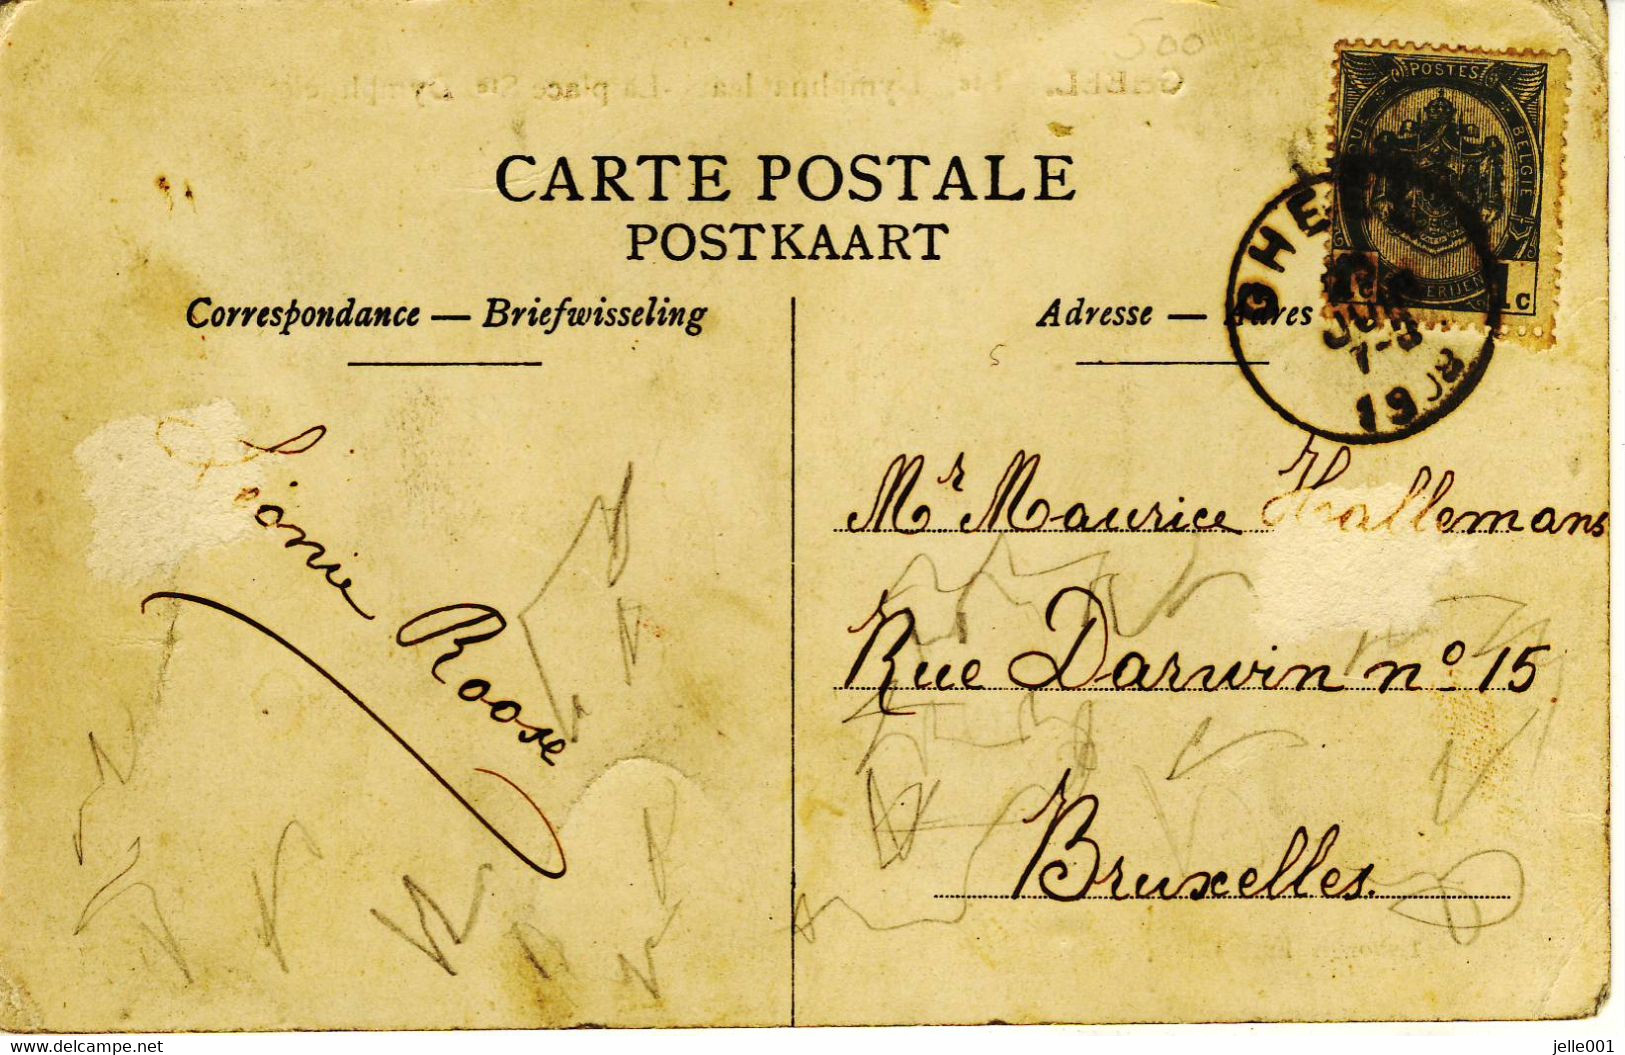 500
CARTE POSTALE
POSTKAART
Correspondance — Briefwisseling
Adresse — Adres
POSTES
BELGIE
1 C
GHEEL
JUIL
7-8
1908
Léonie Roose
Mr Maurice Hallemans
Rue Darwin no 15
Bruxelles.
www.delcampe.net
jelle001